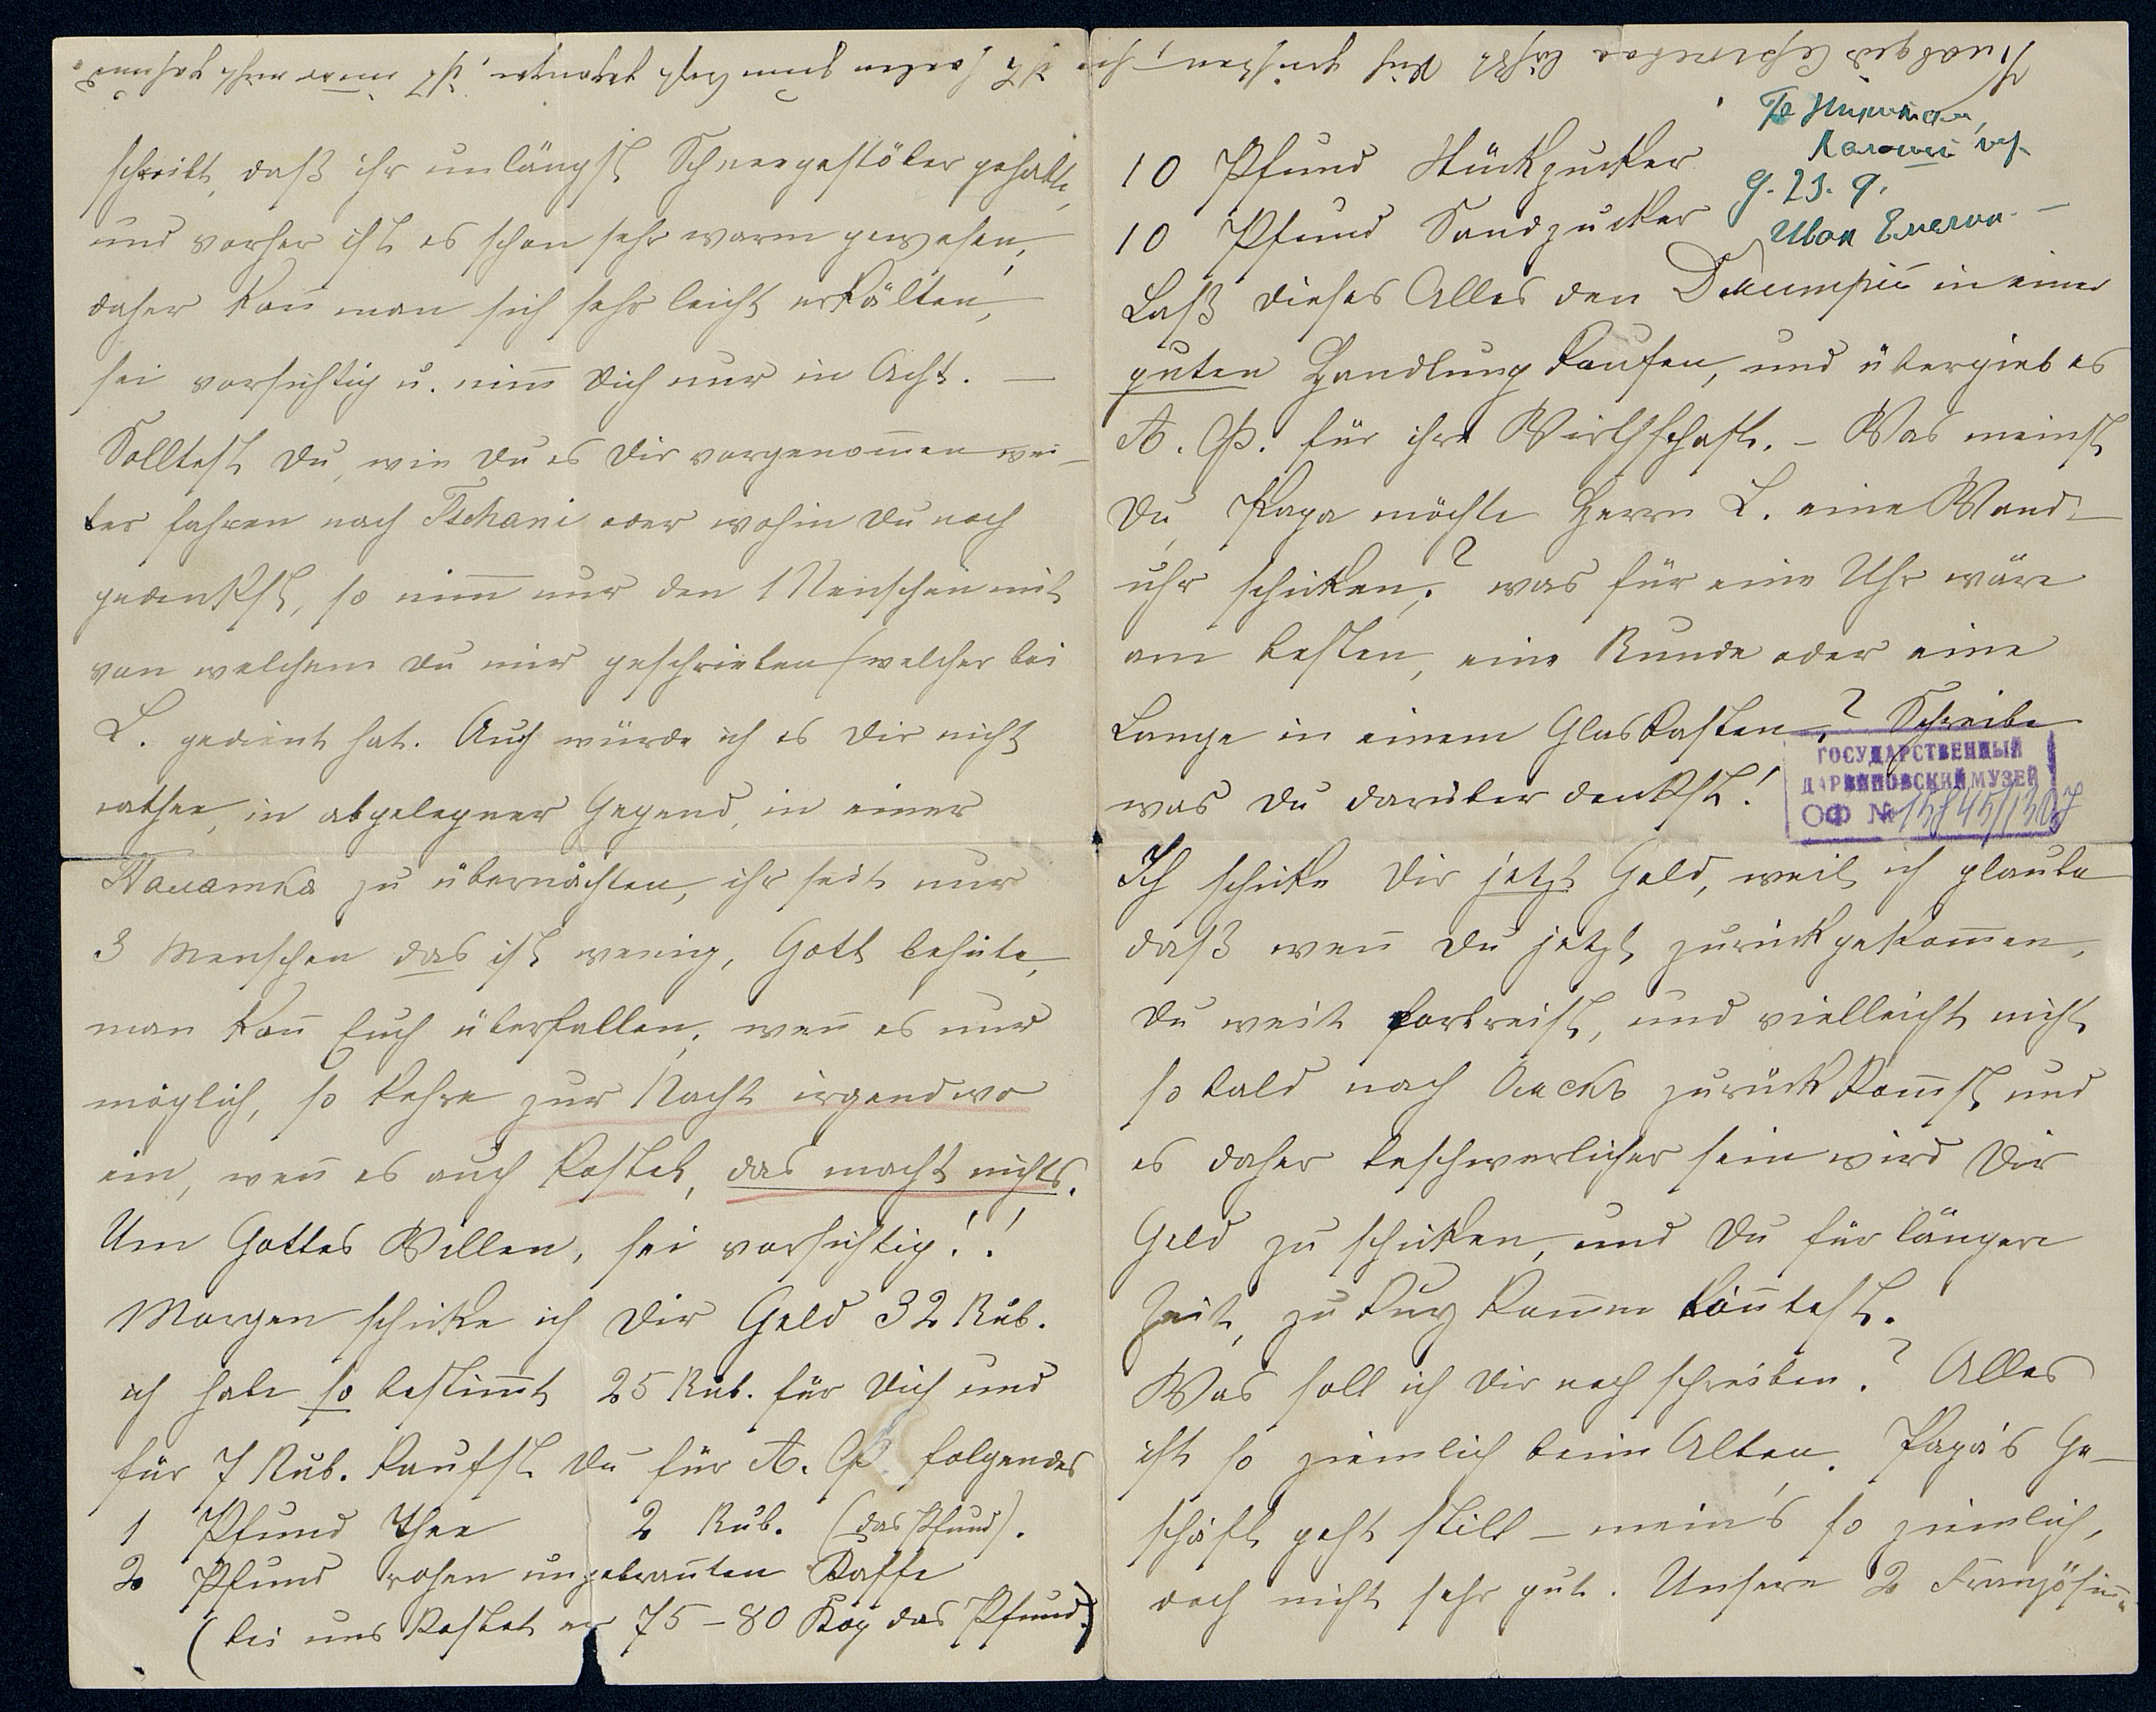 schreibt, daß ihr unlängst Schneegestöber gehabt,
und vorher ist es schon sehr warm gewesen,
daher kan̄ man sich sehr leicht erkälten,
sei vorsichtig u. nim̄ Dich nur in Acht. —
Solltest Du, wie Du es Dir vorgenom̄en wei-
ter fahren nach Tschani oder wohin Du noch
gedenkst, so nim̄ nur den 1 Menschen mit
von welchem Du mir geschrieben (welcher bei
L. gedient hat. Auch würde ich es Dir nicht
rathen, in abgelegner Gegend, in einer
Палатка zu übernachten, ihr seit nur
3 Menschen das ist wenig, Gott behüte,
man kan̄ Euch überfallen, wen̄ es nur
möglich, so kehre zur Nacht irgendwo
ein, wen̄ es auch kostet, das macht nichts.
Um Gottes Willen, sei vorsichtig!!
Morgen schicke ich Dir Geld 32 Rub.
ich habe so bestim̄t 25 Rub. für Dich und
für 7 Rub. kaufst Du für А. Ф. folgendes
1 Pfund Thee 2 Rub. (das Pfund).
2 Pfund rohen ungebran̄ten Kaffe
(bei uns kostet er 75 – 80 Kop das Pfund.)
10 Pfund Stückzucker
10 Pfund Sandzucker
9. 23. 9.
Иван
Laß dieses Alles den Дмитрий in einer
guten Handlung kaufen, und übergieb es
А. Ф. für ihre Wirthschaft. – Was meinst
Du, Papa möchte Herrn L. eine Wand-
uhr schicken,? was für eine Uhr wäre
am besten, eine Runde oder eine
Lange in einem Glaskasten,? Schreibe
was Du darüber denkst!
ГОСУДАРСТВЕННЫЙ
ДАРВИНОВСКИЙ МУЗЕЙ
ОФ №
Ich schicke Dir jetzt Geld, weil ich glaube
daß wen̄ Du jetzt zurückgekom̄en,
Du weit fortreist, und vielleicht nicht
so bald nach Омскъ zurück kom̄st und
es daher beschwerlicher sein wird Dir
Geld zu schicken, und Du für längere
Zeit, zu kurz kom̄en kön̄test.
Was soll ich Dir noch schreiben? Alles
ist so ziemlich beim Alten. Papa's Ge-
schäft geht still – mein's so ziemlich,
doch nicht sehr gut. Unsere 2 Französin̄-